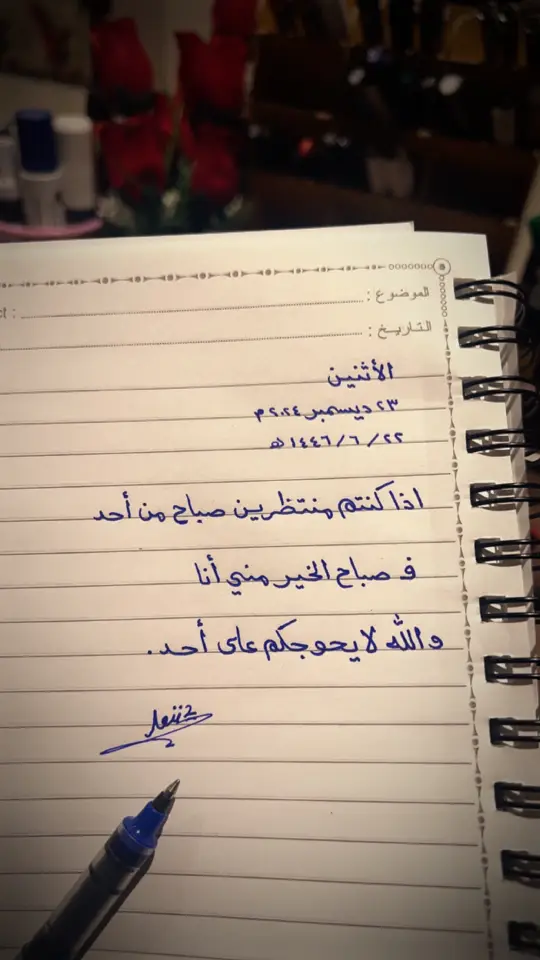 الموضوع :
ct :
التاريخ :
الأثنين
٢٣ ديسمبر ٢٠٢٤ م
٢٢ / ٦ / ١٤٤٦ هـ
اذا كنتم منتظرين صباح من أحد
فـ صباح الخير مني أنا
والله لا يحوجكم على أحد .